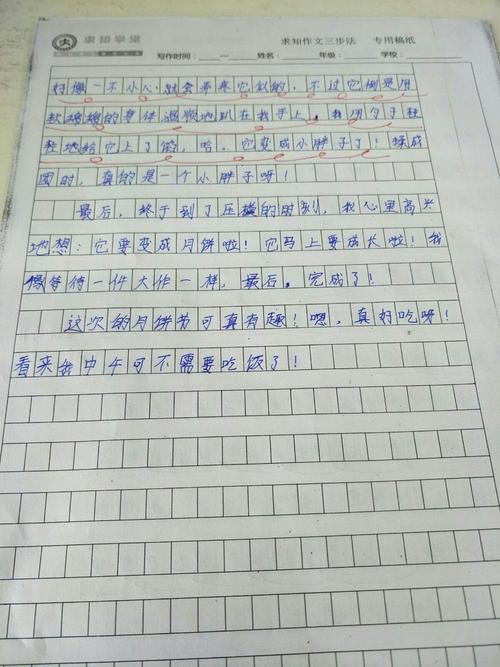 求知学堂
求知作文三步法 专用稿纸
写作时间：——姓名： 年级： 学校：
好像一不小心就会弄来它似的，不过它倒是用
软绵绵的身体温顺地趴在我手上，我用勺子轻
轻地给它上了馅，哈，它变成小胖子了！揉成
圆时，真的是一个小胖子呀！
最后，终于到了压模的时刻，我心里高兴
地想：它要变成月饼啦！它马上要成长啦！我
像等待一件大作一样，最后，完成了！
这次的月饼节可真有趣！嗯，真好吃呀！
看来我中午可不需要吃饭了！